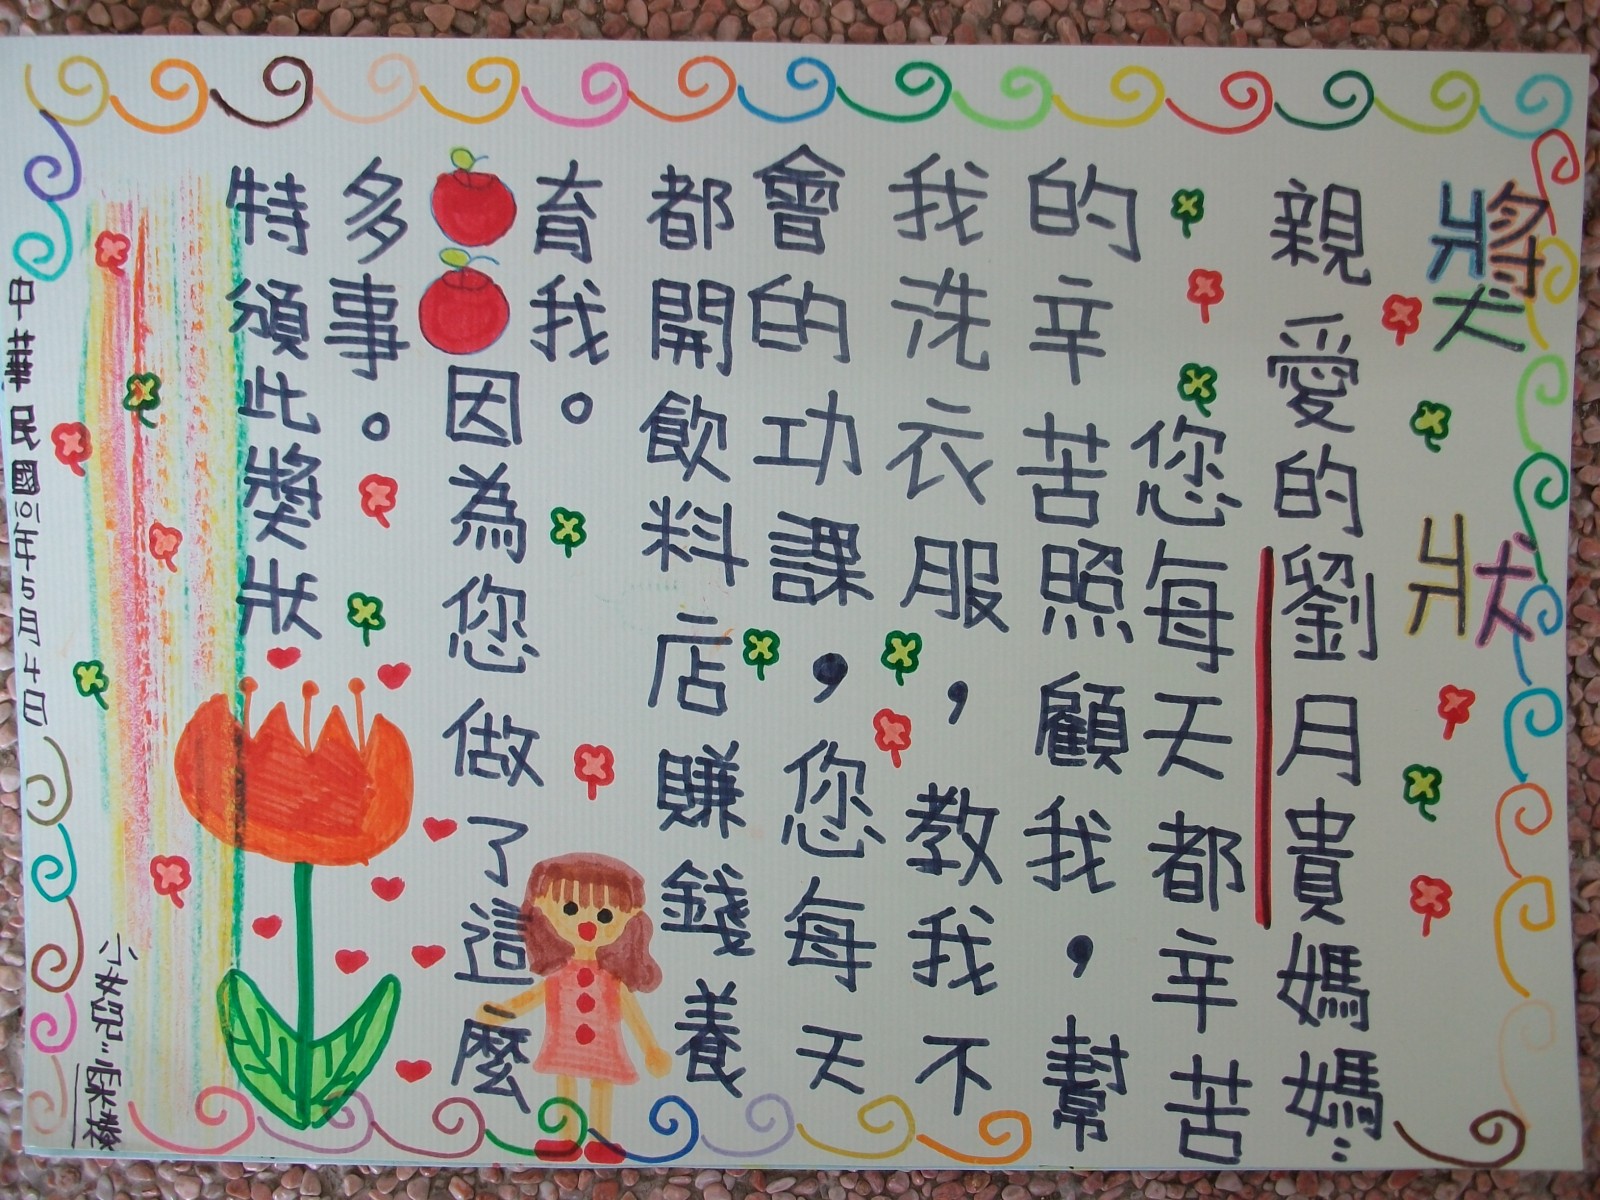 獎狀
親愛的劉月貴媽媽：
您每天都辛苦
的辛苦照顧我，幫
我洗衣服，教我不
會的功課，您每天
都開飲料店賺錢養
育我。
因為您做了這麼
多事。
特頒此獎狀
小女兒：
中華民國101年5月4日